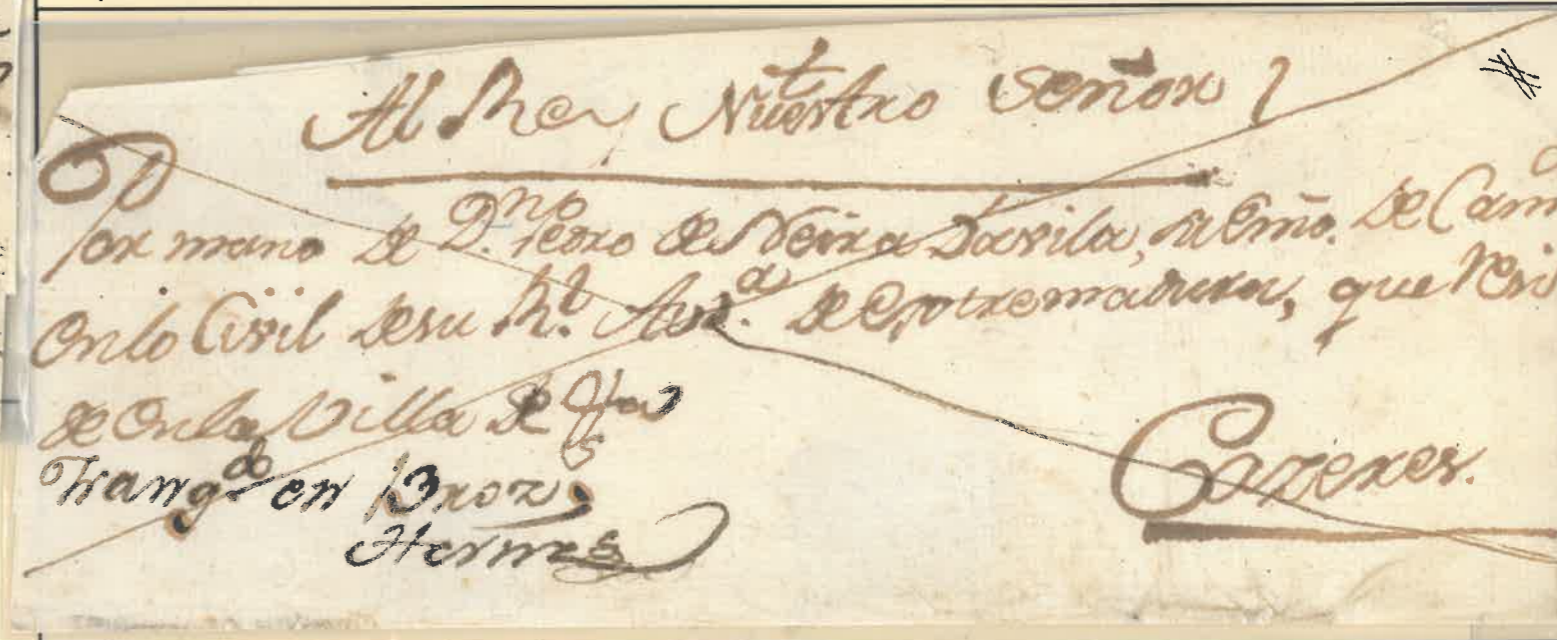 Al Rey Nuestro Señor
Por mano de Dn. Pedro de Neira Davila, su Emo. de Cam
En lo Civil de su Rl. Auda. de Extremadura, que Resi
de en la Villa de
Cazeres.
Franqdo en Broz
Hermes